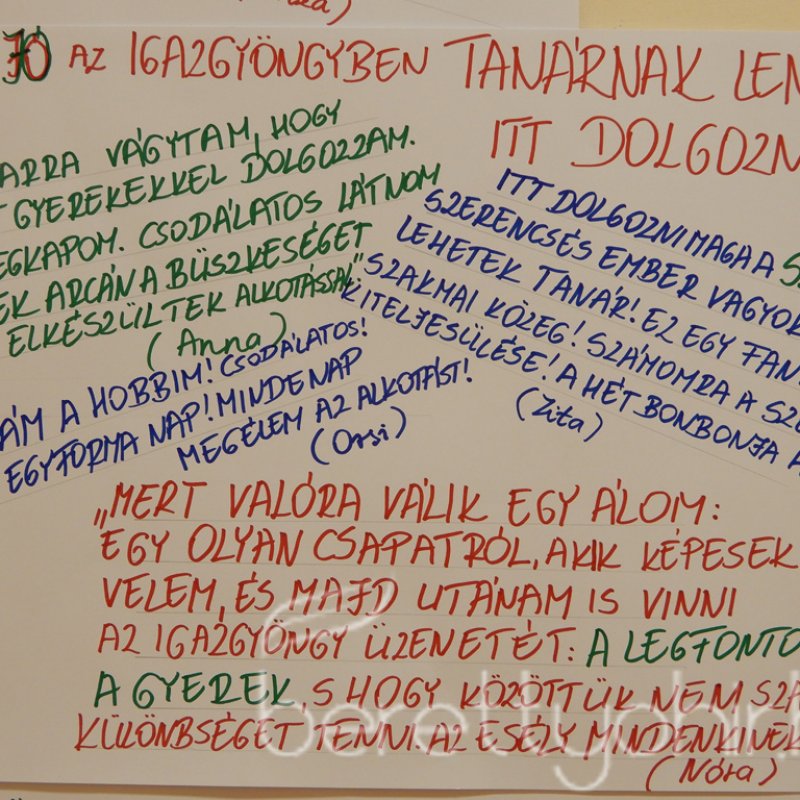 JÓ AZ IGAZGYÖNGYBEN TANÁRNAK LEN
ITT DOLGOZN
ARRA VÁGYTAM, HOGY
GYEREKEKKEL DOLGOZZAM.
EGKAPOM. CSODÁLATOS LÁTNOM
EK ARCÁN A BÜSZKESÉGET
ELKÉSZÜLTEK ALKOTÁSSAL"
(Anna)
ÁM A HOBBIM! CSODÁLATOS!
EGYFORMA NAP! MINDENNAP
MEGÉLEM AZ ALKOTÁST!
(Orsi)
ITT DOLGOZNI MAGA A S
SZERENCSÉS EMBER VAGYOK
LEHETEK TANÁR! EZ EGY FAN
SZAKMAI KÖZEG! SZÁMOMRA A SZ
KITELJESÜLÉSE! A HÉT BONBONJA A
(Zita)
„MERT VALÓRA VÁLIK EGY ÁLOM:
EGY OLYAN CSAPATRÓL, AKIK KÉPESEK
VELEM, ÉS MAJD UTÁNAM IS VINNI
AZ IGAZGYÖNGY ÜZENETÉT: A LEGFONTO
A GYEREK, S HOGY KÖZÖTTÜK NEM SZA
KÜLÖNBSÉGET TENNI. AZ ESÉLY MINDENKINEK
(Nóra)